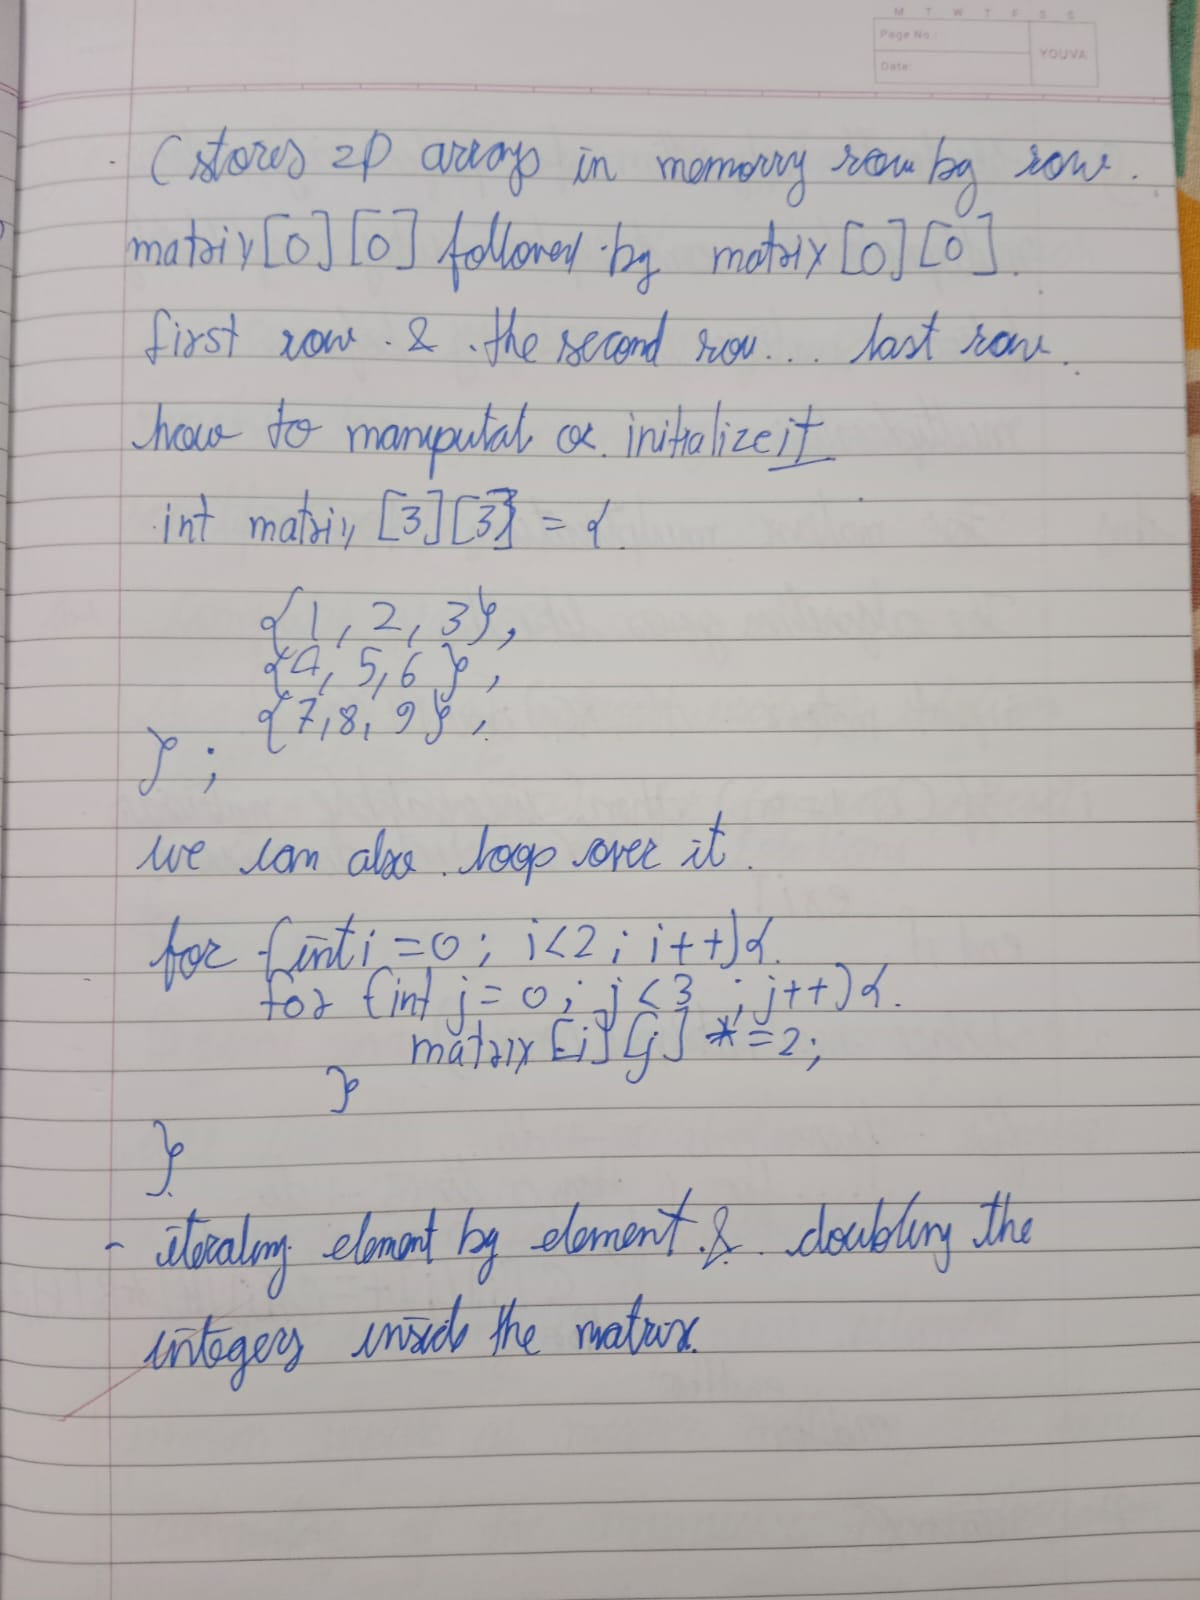 M T W T F S S
Page No.:
YOUVA
Date:
C stores 2D arrays in memorry row by row.
matrix[0][0] followed by matrix[0][0].
first row & the second row... last row.
how to manputal or initialize it
int matrix [3][3] = {
{1, 2, 3},
{4, 5, 6},
{7, 8, 9},
};
we can also loop over it.
for (int i = 0; i<2; i++){
for (int j = 0; j<3; j++){
matrix[i][j] *=2;
}
}
- iterating element by element & doubling the
integers inside the matrix.